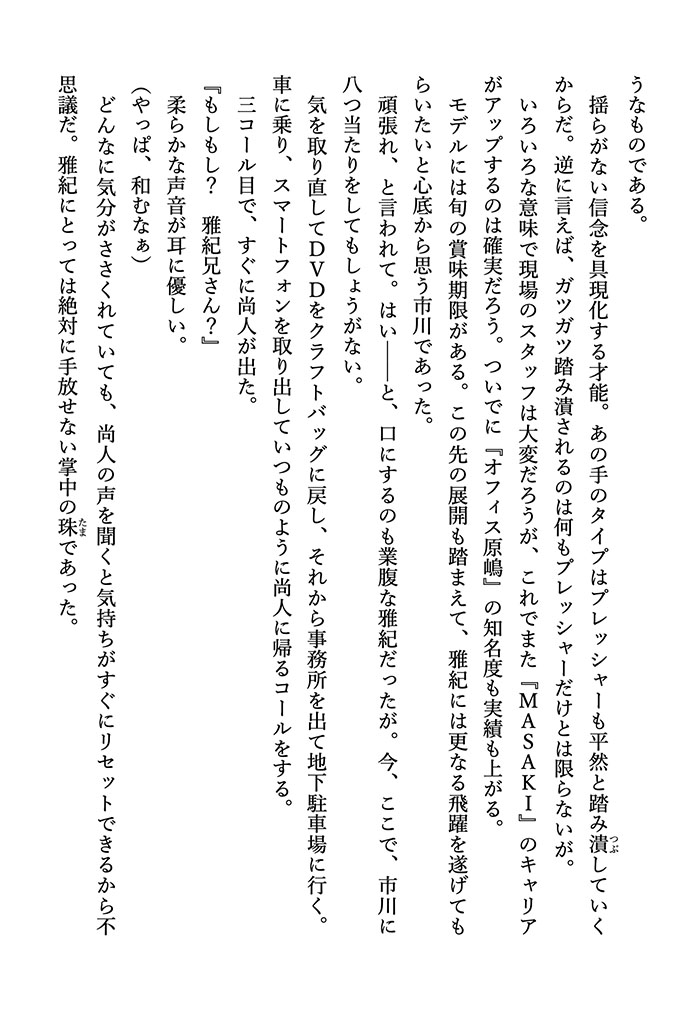 うなものである。
　揺らがない信念を具現化する才能。あの手のタイプはプレッシャーも平然と踏み潰していく
からだ。逆に言えば、ガツガツ踏み潰されるのは何もプレッシャーだけとは限らないが。
　いろいろな意味で現場のスタッフは大変だろうが、これでまた『ＭＡＳＡＫＩ』のキャリア
がアップするのは確実だろう。ついでに『オフィス原嶋』の知名度も実績も上がる。
　モデルには旬の賞味期限がある。この先の展開も踏まえて、雅紀には更なる飛躍を遂げても
らいたいと心底から思う市川であった。
　頑張れ、と言われて。はい――と、口にするのも業腹な雅紀だったが。今、ここで、市川に
八つ当たりをしてもしょうがない。
　気を取り直してＤＶＤをクラフトバッグに戻し、それから事務所を出て地下駐車場に行く。
車に乗り、スマートフォンを取り出していつものように尚人に帰るコールをする。
　三コール目で、すぐに尚人が出た。
『もしもし？　雅紀兄さん？』
　柔らかな声音が耳に優しい。
（やっぱ、和むなぁ）
　どんなに気分がささくれていても、尚人の声を聞くと気持ちがすぐにリセットできるから不
思議だ。雅紀にとっては絶対に手放せない掌中の珠であった。